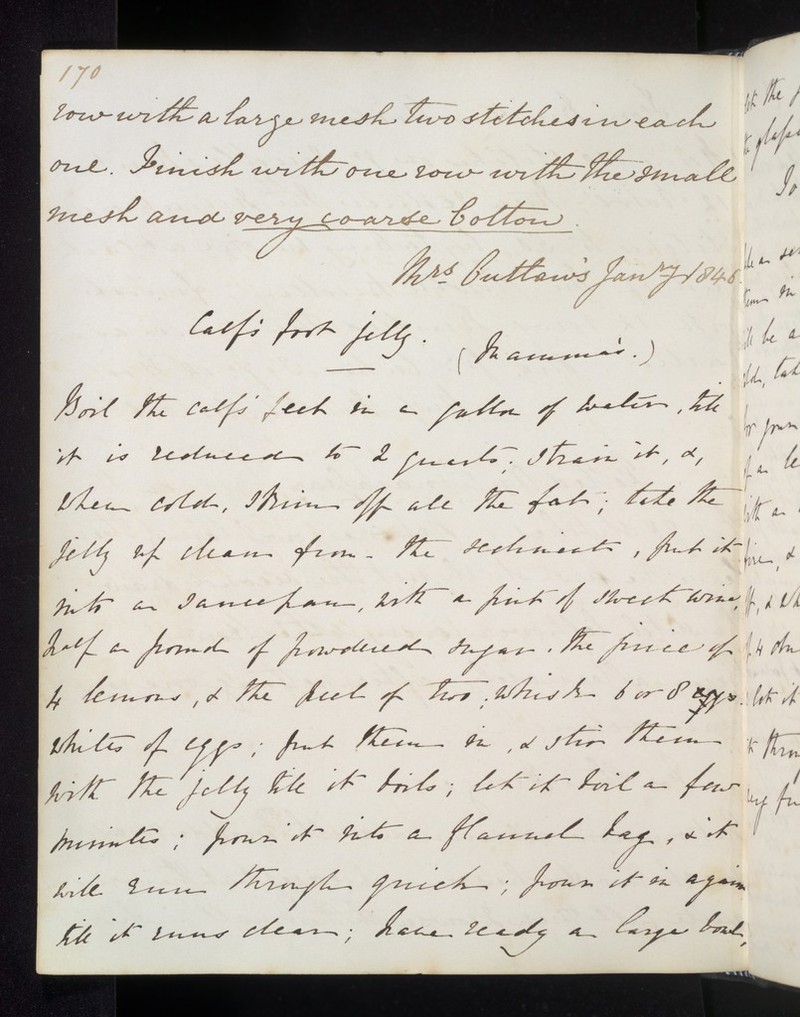 170
row with a large mesh two stitches in each
one. Finish with one row with the small
mesh and very coarse Cotton.
Mrs. Janry 1846
Calf's foot jelly.
(Mamma's.)
Boil the calf's feet in a gallon of water, till
it is reduced to 2 quarts; strain it, &,
when cold, skim off all the fat; take the
jelly up clean from the sediment, put it
into a saucepan, with a pint of sweet wine,
half a pound of powdered sugar, the juice of
4 lemons, & the peel of two; whisk 6 or 8 eggs
whites of eggs; put them in, & stir them
with the jelly till it boils; let it boil a few
minutes; pour it into a flannel bag, & it
will run through quick; pour it in again
till it runs clear; have ready a large bowl,